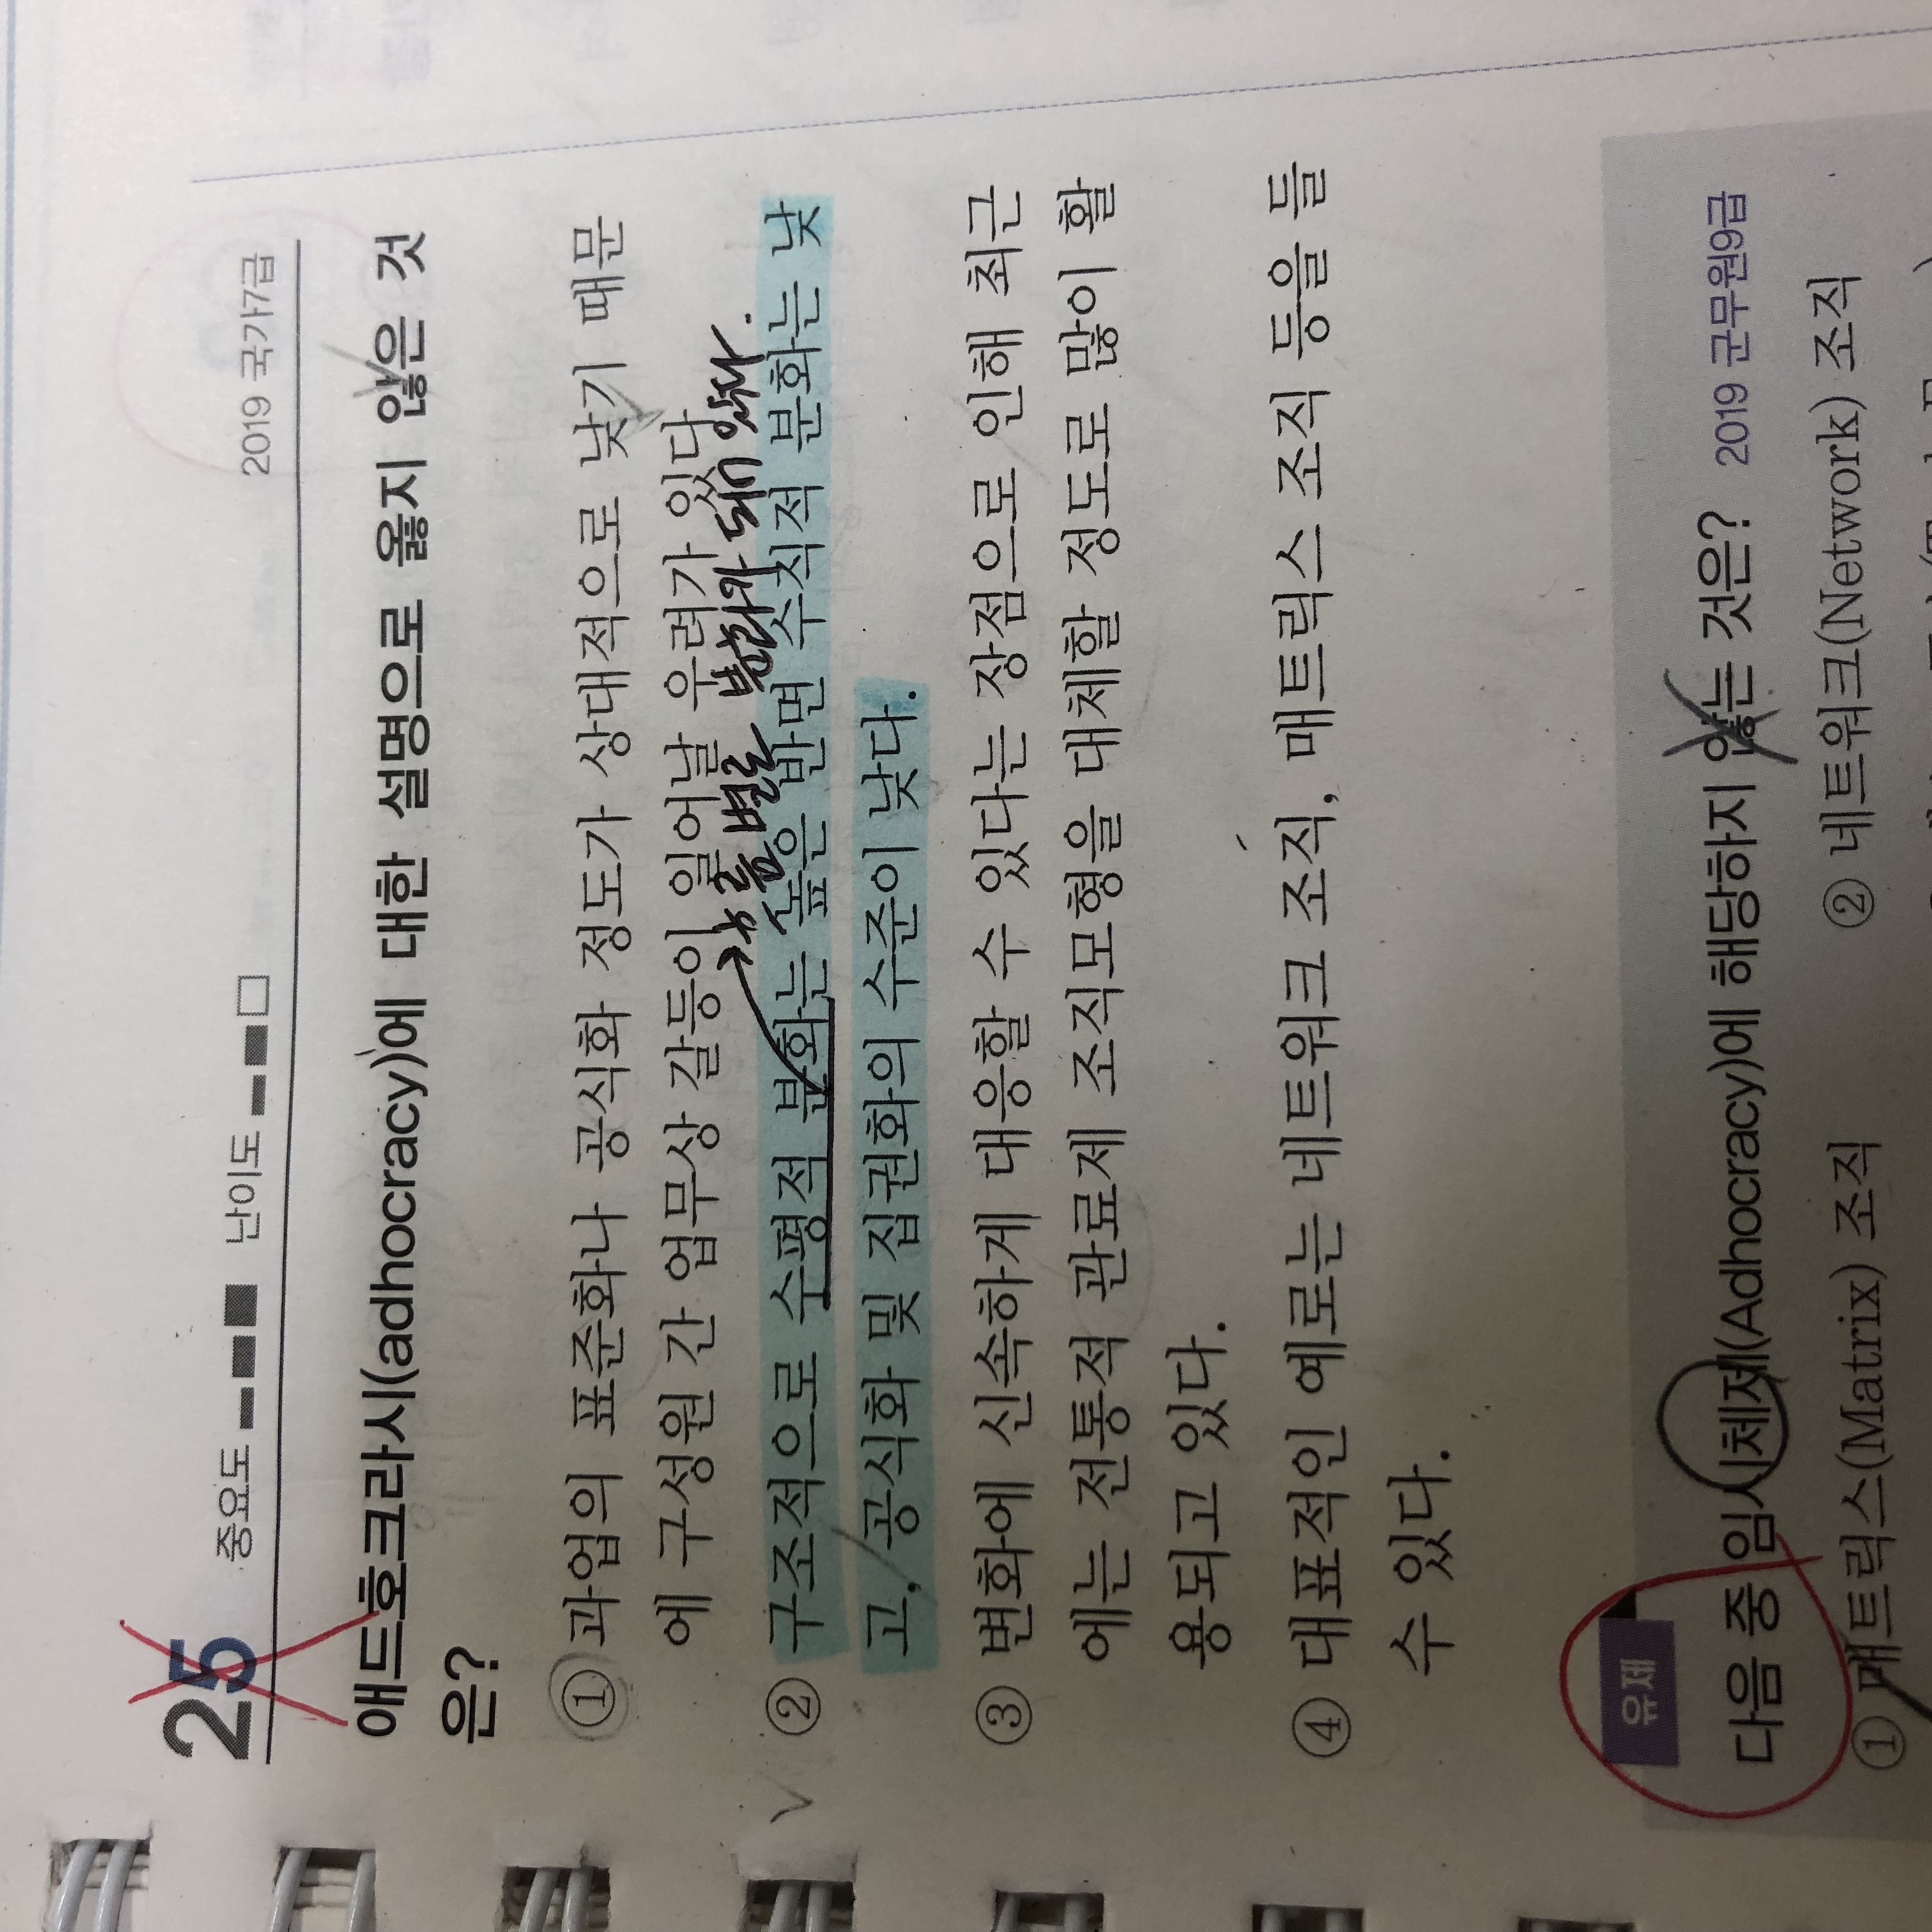 25 중요도 난이도 2019 국가7급
애드호크라시(adhocracy)에 대한 설명으로 옳지 않은 것
은?
① 과업의 표준화나 공식화 정도가 상대적으로 낮기 때문
에 구성원 간 업무상 갈등이 일어날 우려가 있다
② 구조적으로 수평적 분화는 높은 반면 수직적 분화는 낮
고, 공식화 및 집권화의 수준이 낮다.
③ 변화에 신속하게 대응할 수 있다는 장점으로 인해 최근
에는 전통적 관료제 조직모형을 대체할 정도로 많이 활
용되고 있다.
④ 대표적인 예로는 네트워크 조직, 매트릭스 조직 등을 들
수 있다.
유제
다음 중 임시체제(Adhocracy)에 해당하지 않는 것은? 2019 군무원9급
① 매트릭스(Matrix) 조직 ② 네트워크(Network) 조직